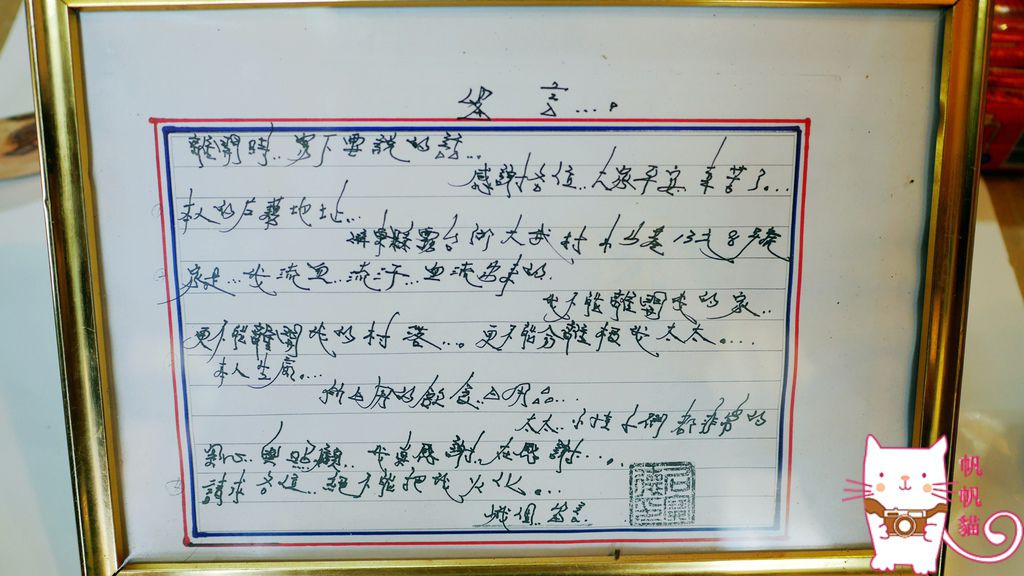 離開時..寫下要說的話...
感謝各位..大家平安辛苦了。...
本人的戶籍地址...
屏東縣霧台鄉大武村小山巷13之8號
家是...我流血..流汗..血流出來的.
我不能離開我的家..
更不能離開我的村落...。更不能分離我太太。...
本人生病。...
所有用的飲食...用品....
太太..小孩子們都非常的
關心..與照顧..
請求各位..絕不能把我火化。...
帆帆貓